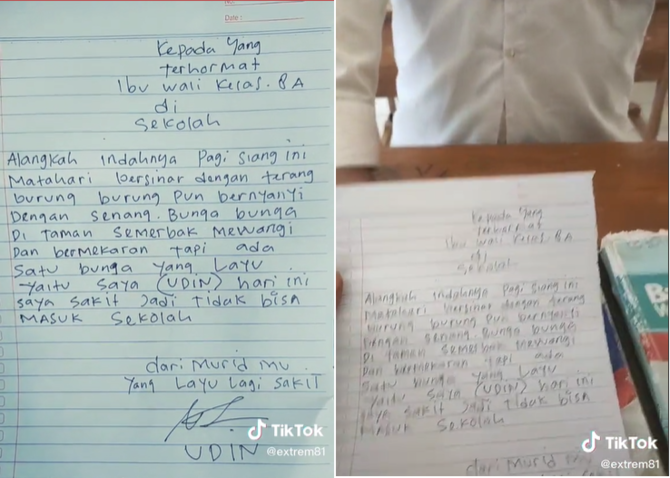 No:
Date:
Kepada Yang
terhormat
Ibu wali Kelas. 8A
di
Sekolah
Alangkah indahnya Pagi siang ini
Matahari bersinar dengan terang
burung burung Pun bernyanyi
Dengan senang. Bunga bunga
Di Taman Semerbak Mewangi
Dan bermekaran tapi ada
Satu bunga yang Layu
Yaitu Saya (UDIN) hari ini
saya sakit Jadi Tidak bisa
MASUK Sekolah
dari Murid mu
Yang Layu Lagi SAKIT
UDIN
TikTok
@extrem81
Kepada Yang
Terhormat
Ibu wali Kelas 8A
di
Sekolah
Alangkah indahnya Pagi siang ini
Matahari bersinar dengan terang
burung burung Pun bernyanyi
Dengan senang. Bunga bunga
Di Taman Semerbak Mewangi
Dan bermekaran tapi ada
Satu bunga yang Layu
Yaitu Saya (UDIN) hari ini
saya sakit Jadi Tidak bisa
MASUK Sekolah
dari Murid mu
TikTok
@extrem81